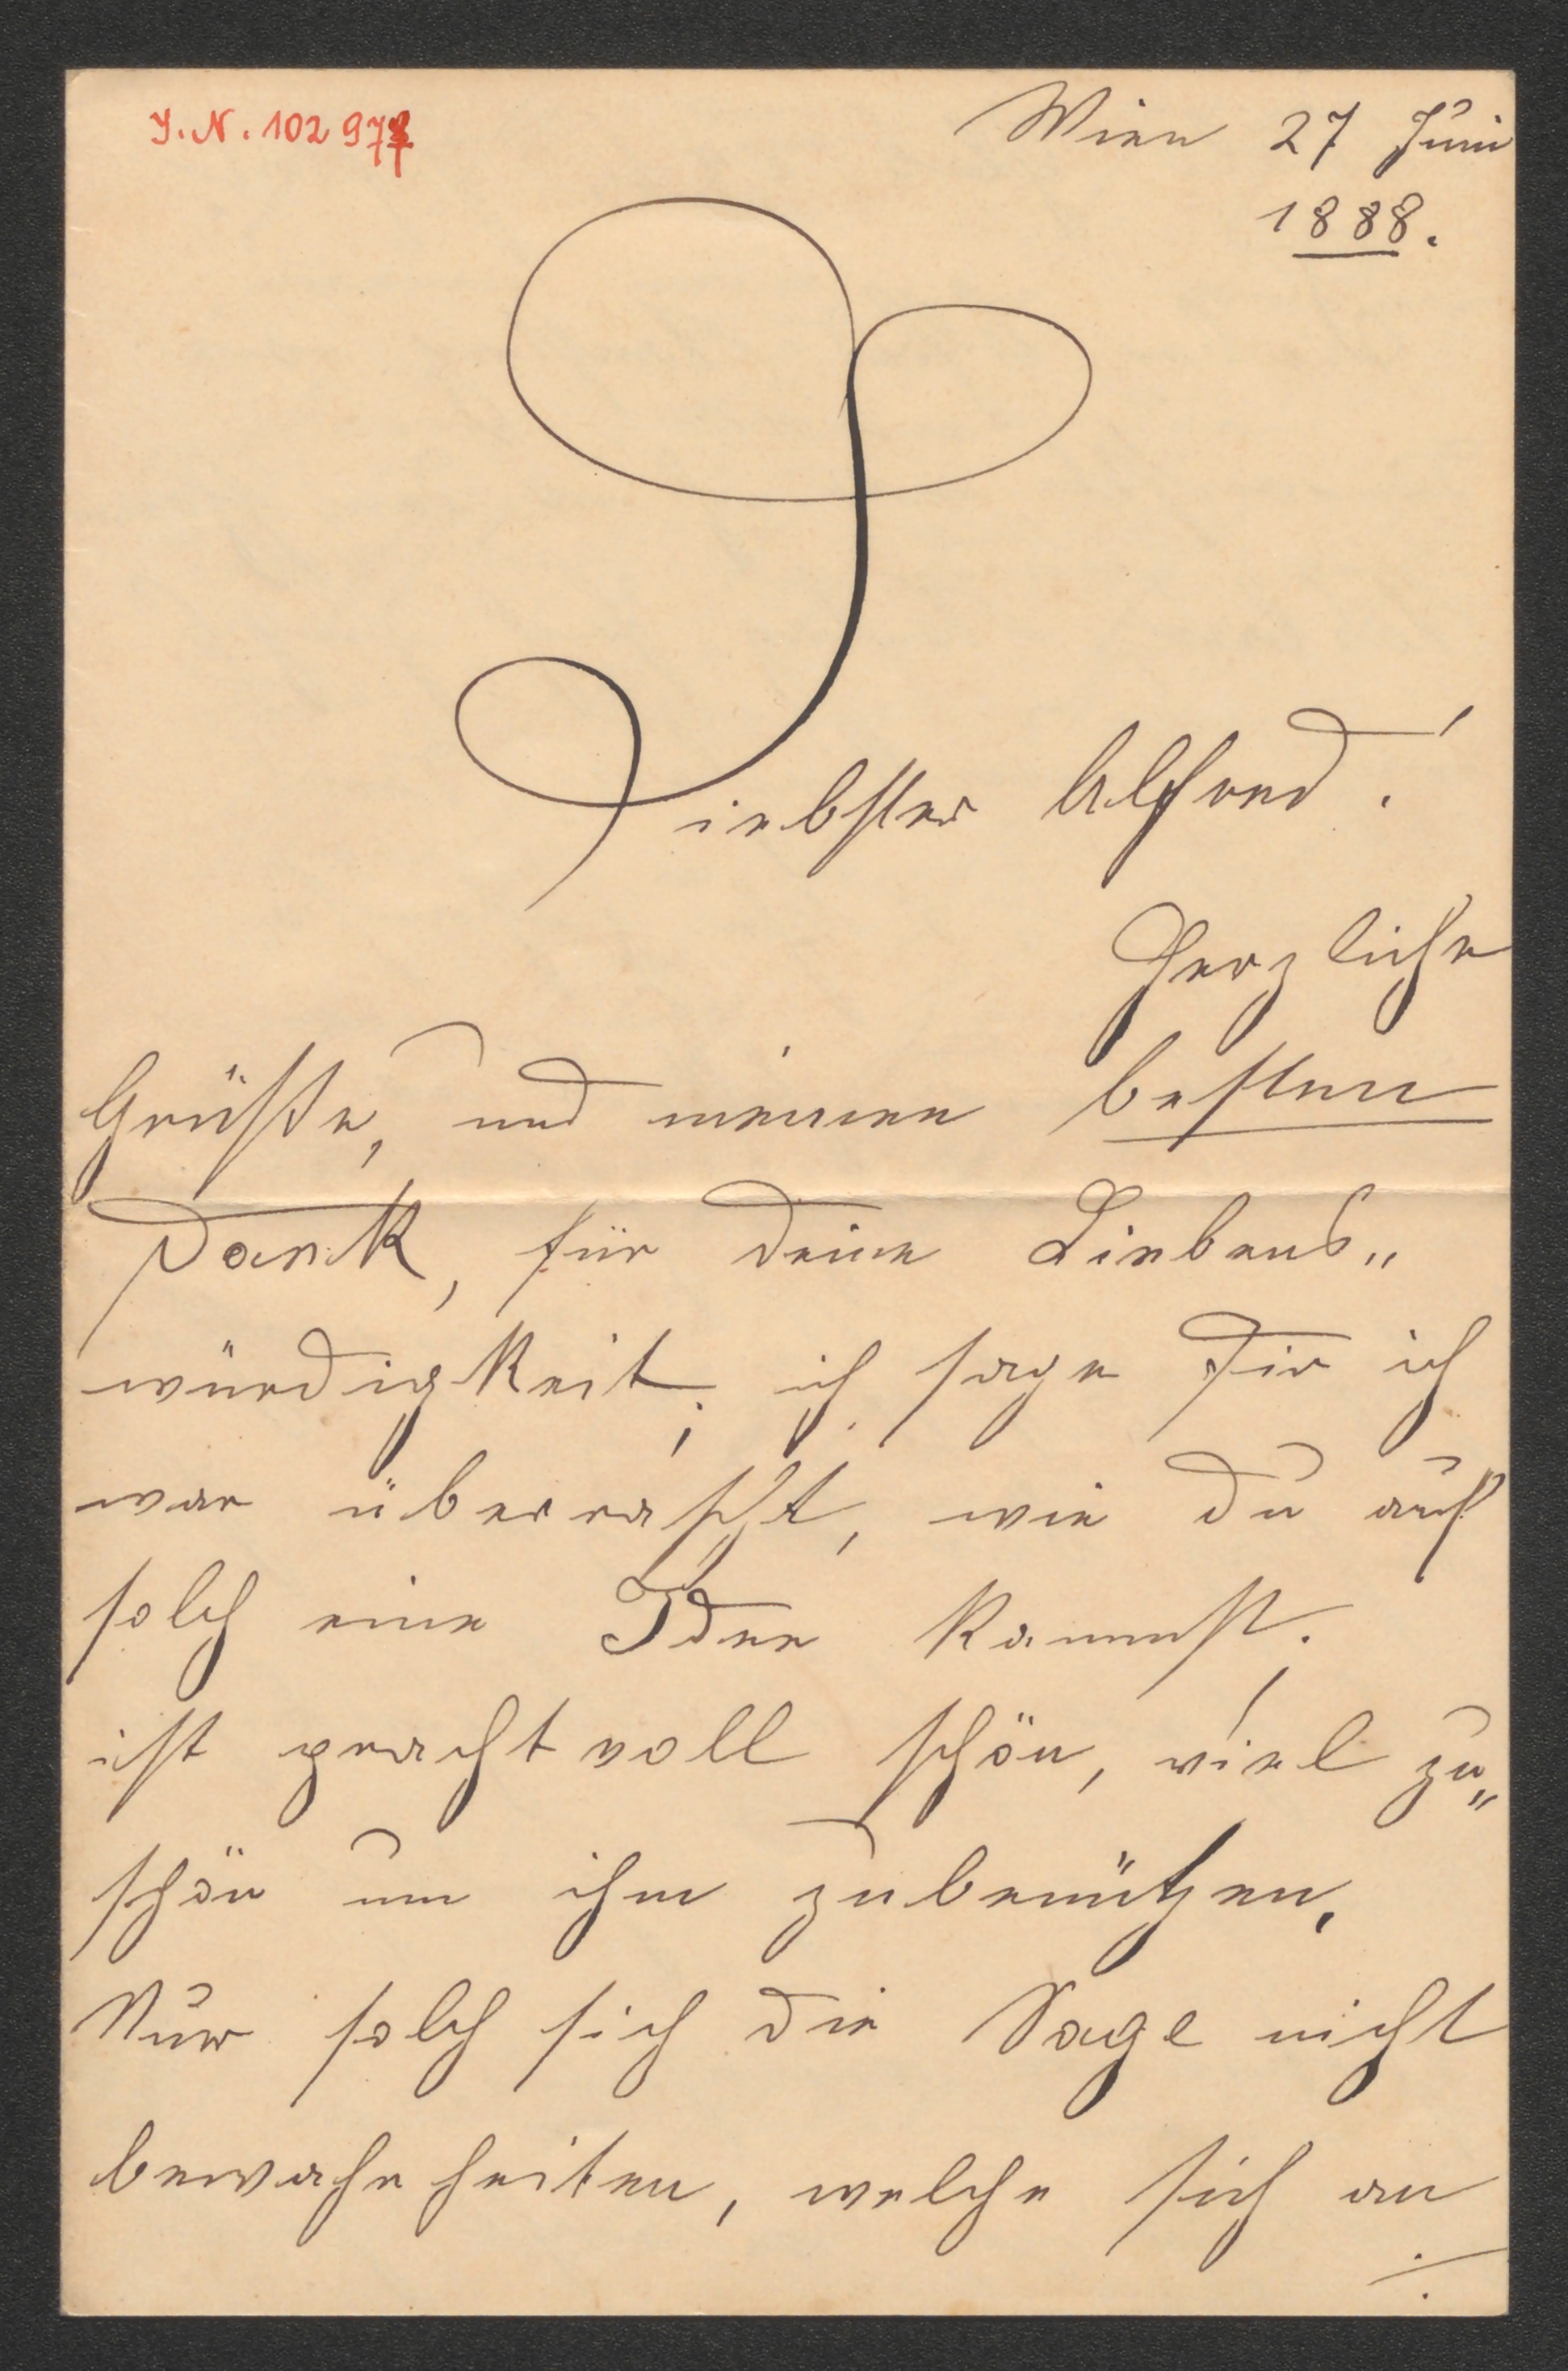 J.N. 102 977
Wien 27 Juni
1888.
Liebster Alfred!
Herzliche
Grüße, und meinen besten
Dank, für deine Liebens„
würdigkeit; ich sage Dir ich
war überrascht, wie du auf
solch eine Idee kammst.
ist prachtvoll schön, viel zu„
schön um ihm zubenützen,
Nur solch sich die Sage nicht
bewahrheiten, welche sich an
./.